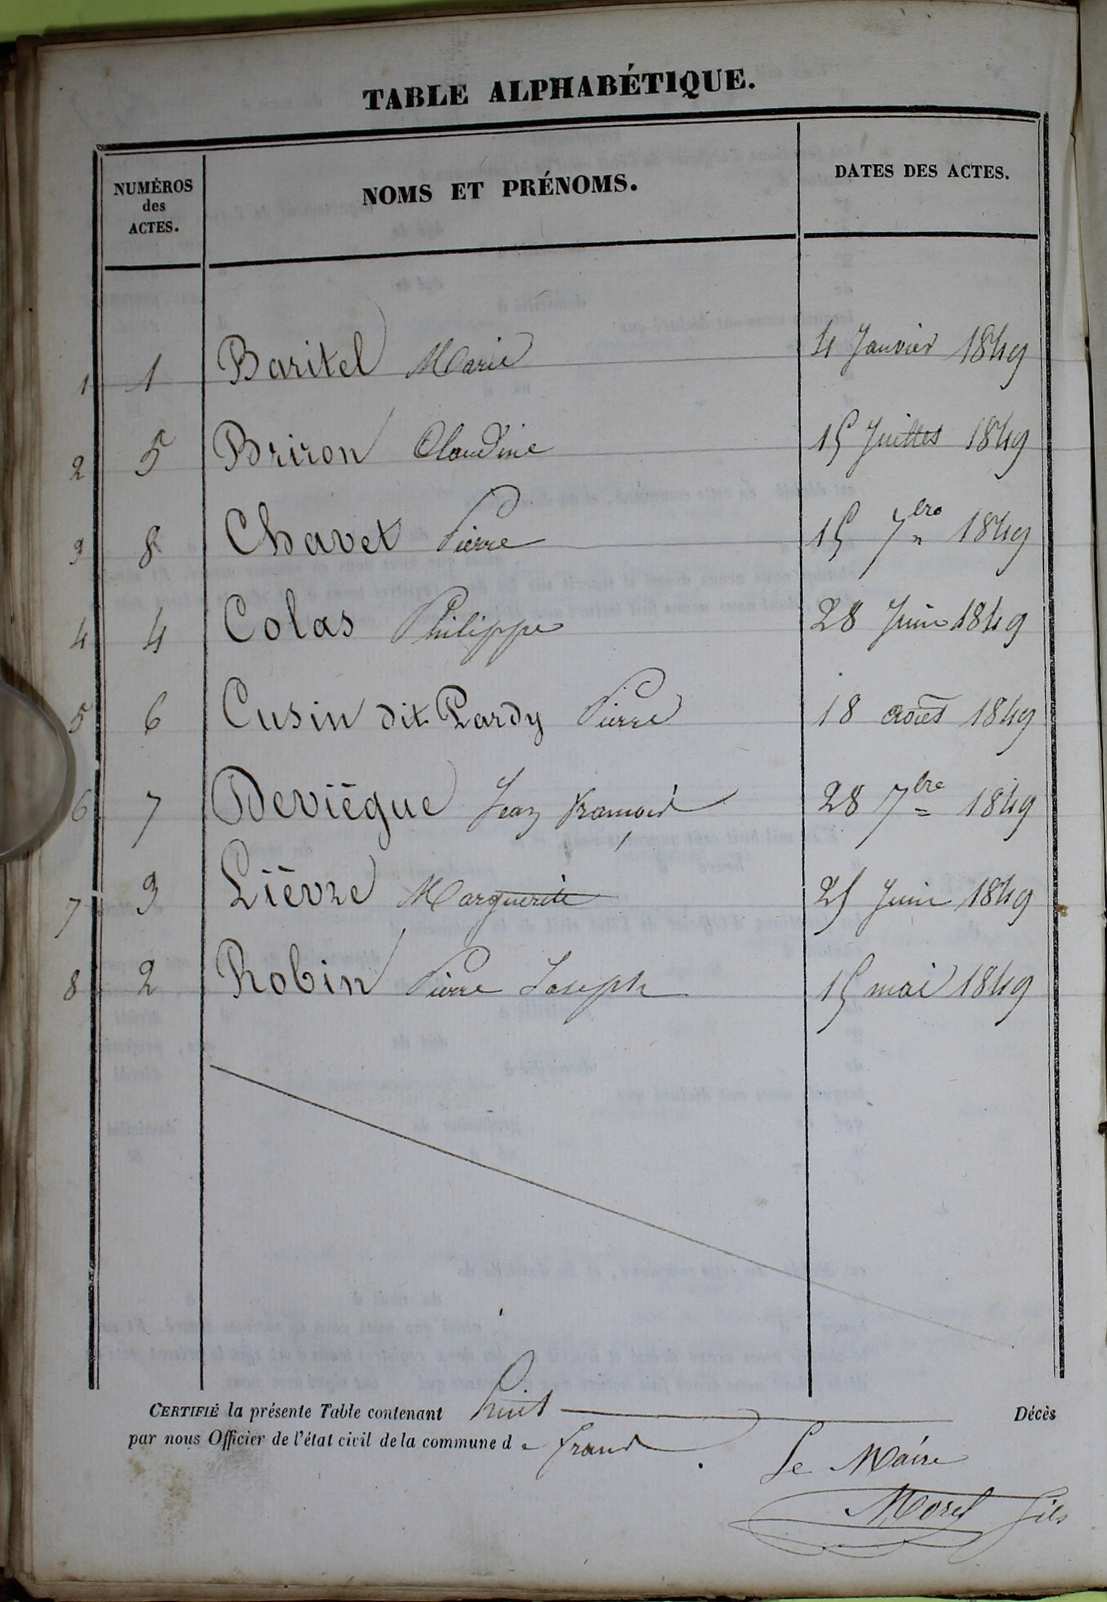 TABLE ALPHABÉTIQUE.
NUMÉROS des ACTES. NOMS ET PRÉNOMS. DATES DES ACTES.
1 1 Baritel Marie 4 Janvier 1849
2 5 Briron Claudine 15 Juillet 1849
3 8 Chavet Pierre 15 7bre 1849
4 4 Colas Philippe 28 Juin 1849
5 6 Cusin dit Pardy Pierre 18 août 1849
6 7 Deviègue Jean François 28 7bre 1849
7 3 Lièvre Marguerite 25 Juin 1849
8 2 Robin Pierre Joseph 15 mai 1849
CERTIFIÉ la présente Table contenant huit Décès
par nous Officier de l'état civil de la commune de
Le Maire
Morel fils